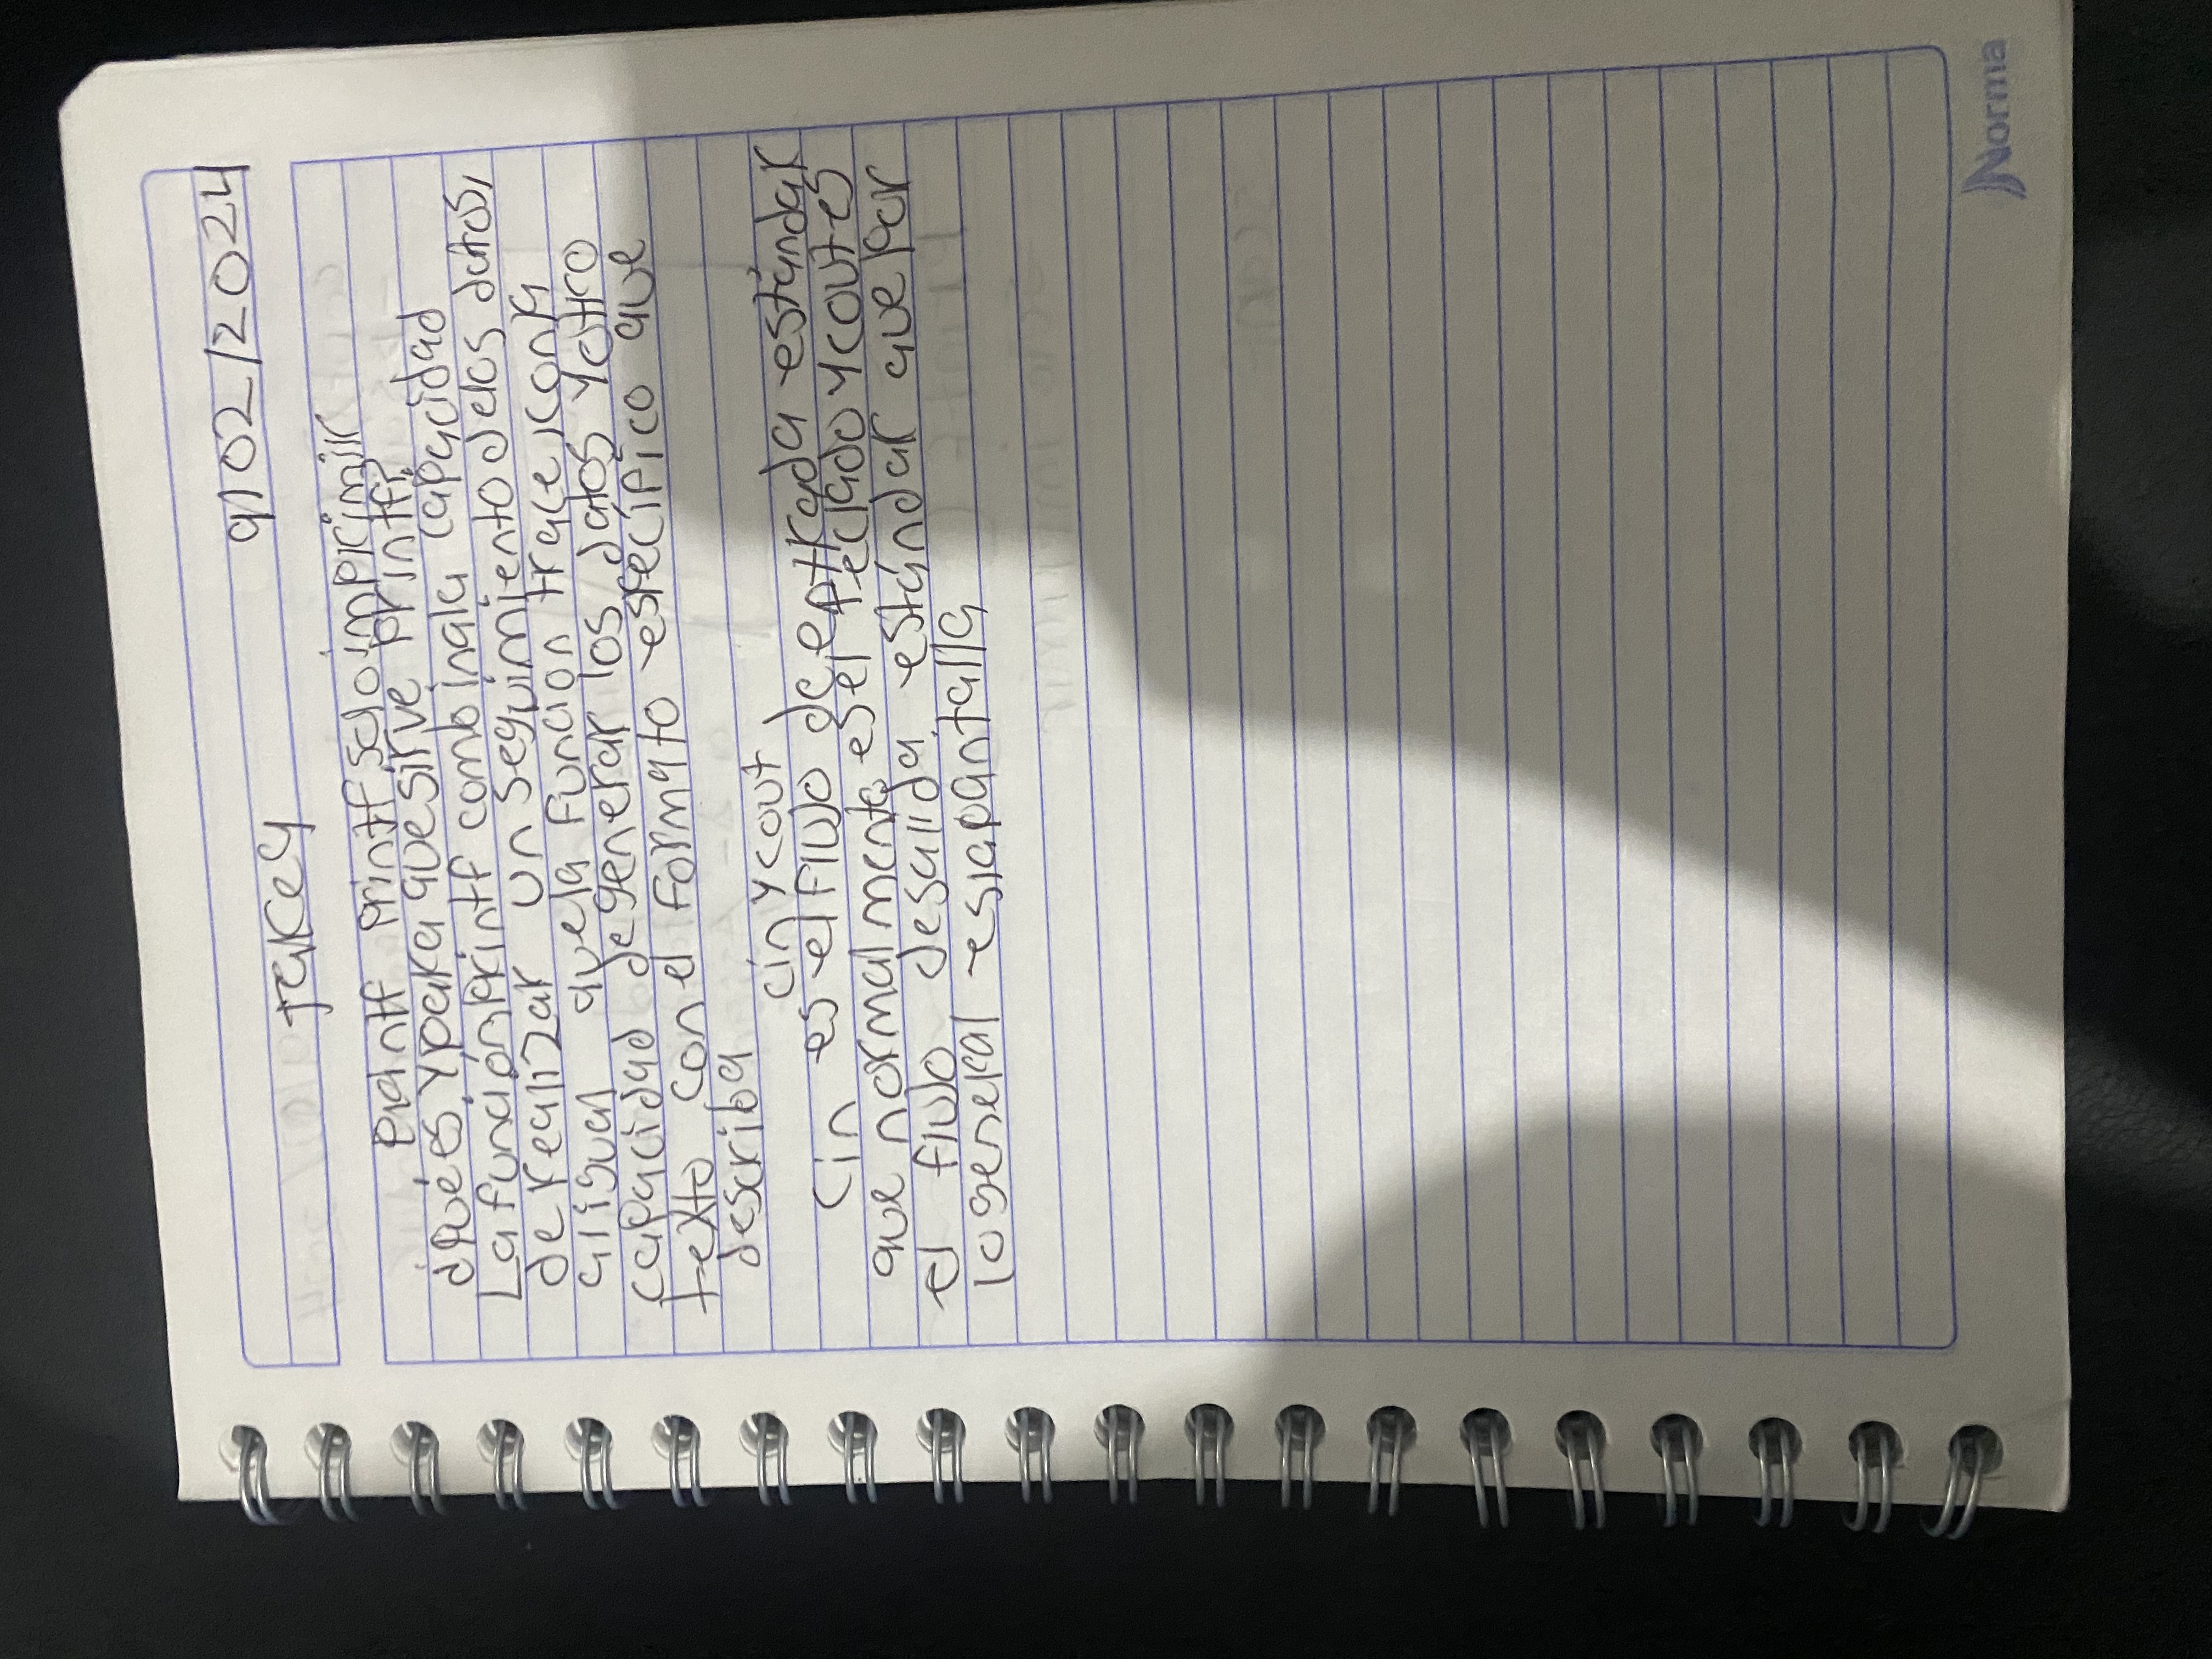 9/02/2024
Tarea
Printf printf solo imprimir
dqués y para que sirve printf,
La función printf combinala capacidad
de realizar un seguimiento delos datos,
al igual quela funcion trace, con la
capacidad degenerar los datos y otro
texto con el formato especifico que
describa
cin y cout
Cin es el flujo de entrada estándar
que normalmente es el teclado y cout es
el flujo desalida estándar que por
logeneral es la pantalla
Norma